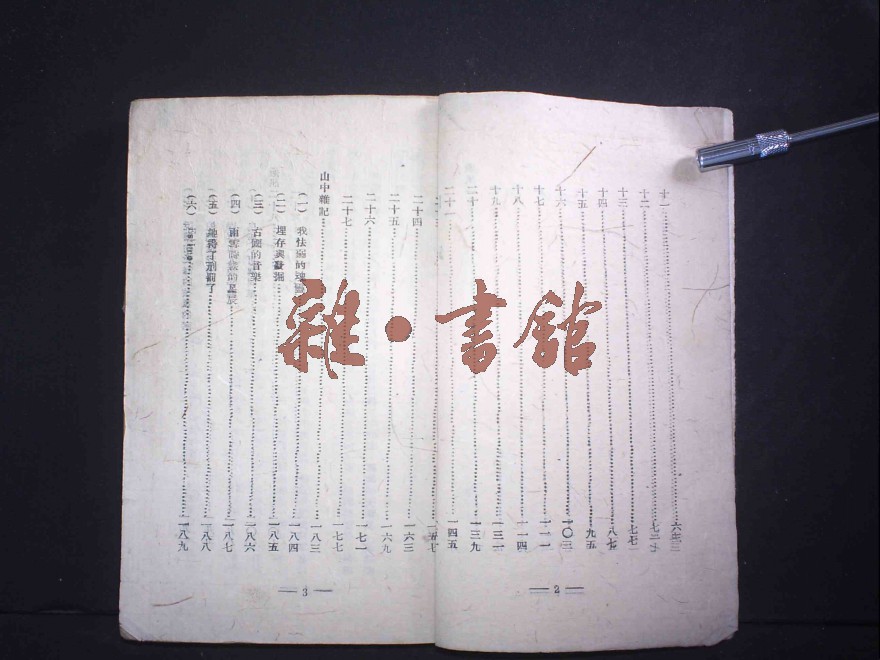 十一 六三
十二 七二
十三 七七
十四 八七
十五 九五
十六 一〇三
十七 一一一
十八 一一四
十九 一三一
二十 一三九
二十一 一四五
2
一五七
二十四 一六三
二十五 一六九
二十六 一七一
二十七 一七七
山中雜記 一八三
(一) 我怯弱的 一八四
(二) 埋存與發掘 一八五
(三) 古國的音樂 一八六
(四) 雨雪時候的星辰 一八七
(五) 她得了刑罰了 一八八
(六) 一八九
3
雜·書館